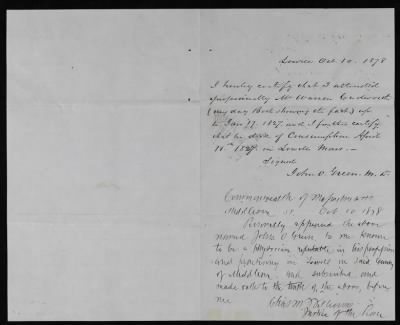 Lowell Oct 10. 1878
I hereby certify that I attended
professionally Mr Warren
(my day Book showing the fact) up
to Jany 17. 1827 and I further certify
that he died of Consumption April
11th 1827. in Lowell Mass. —
Signed
John O. Green. M. D.
Commonwealth of Massachusetts
Middlesex ss. Oct 10 1878
Personally appeared the above
named John O. Green to me known
to be a Physician reputable in his profession
and practicing in Lowell in said County
of Middlesex and subscribed and
made oath to the truth of the above, before
me
Justice of the Peace